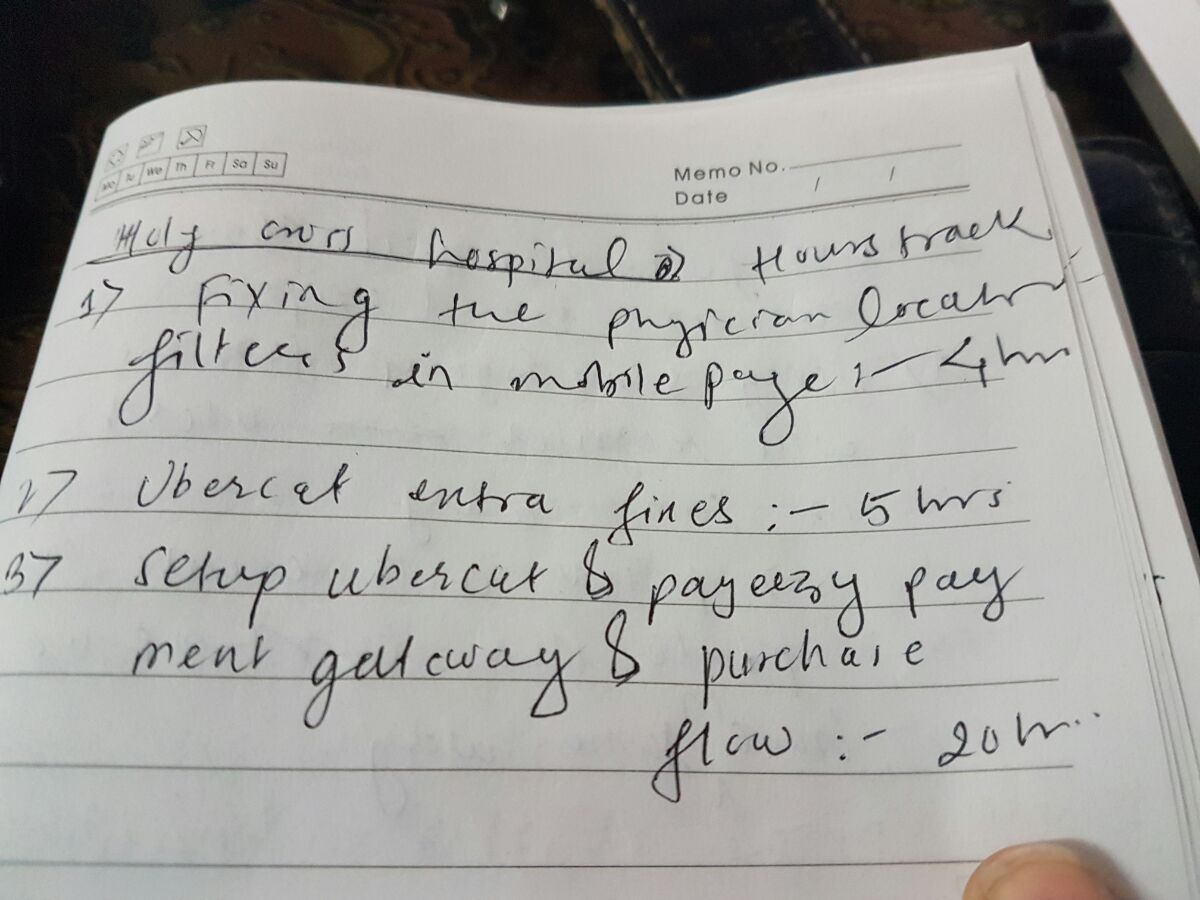 Mo Tu We Th Fr Sa Su
Memo No.
Date / /
Holy cross hospital Hours track
1> Fixing the physician location
filters in mobile page :- 4 hr
2> Ubercat extra fixes :- 5 hrs
3> Setup ubercat & payeezy pay
ment gateway & purchase
flow :- 20 hr..